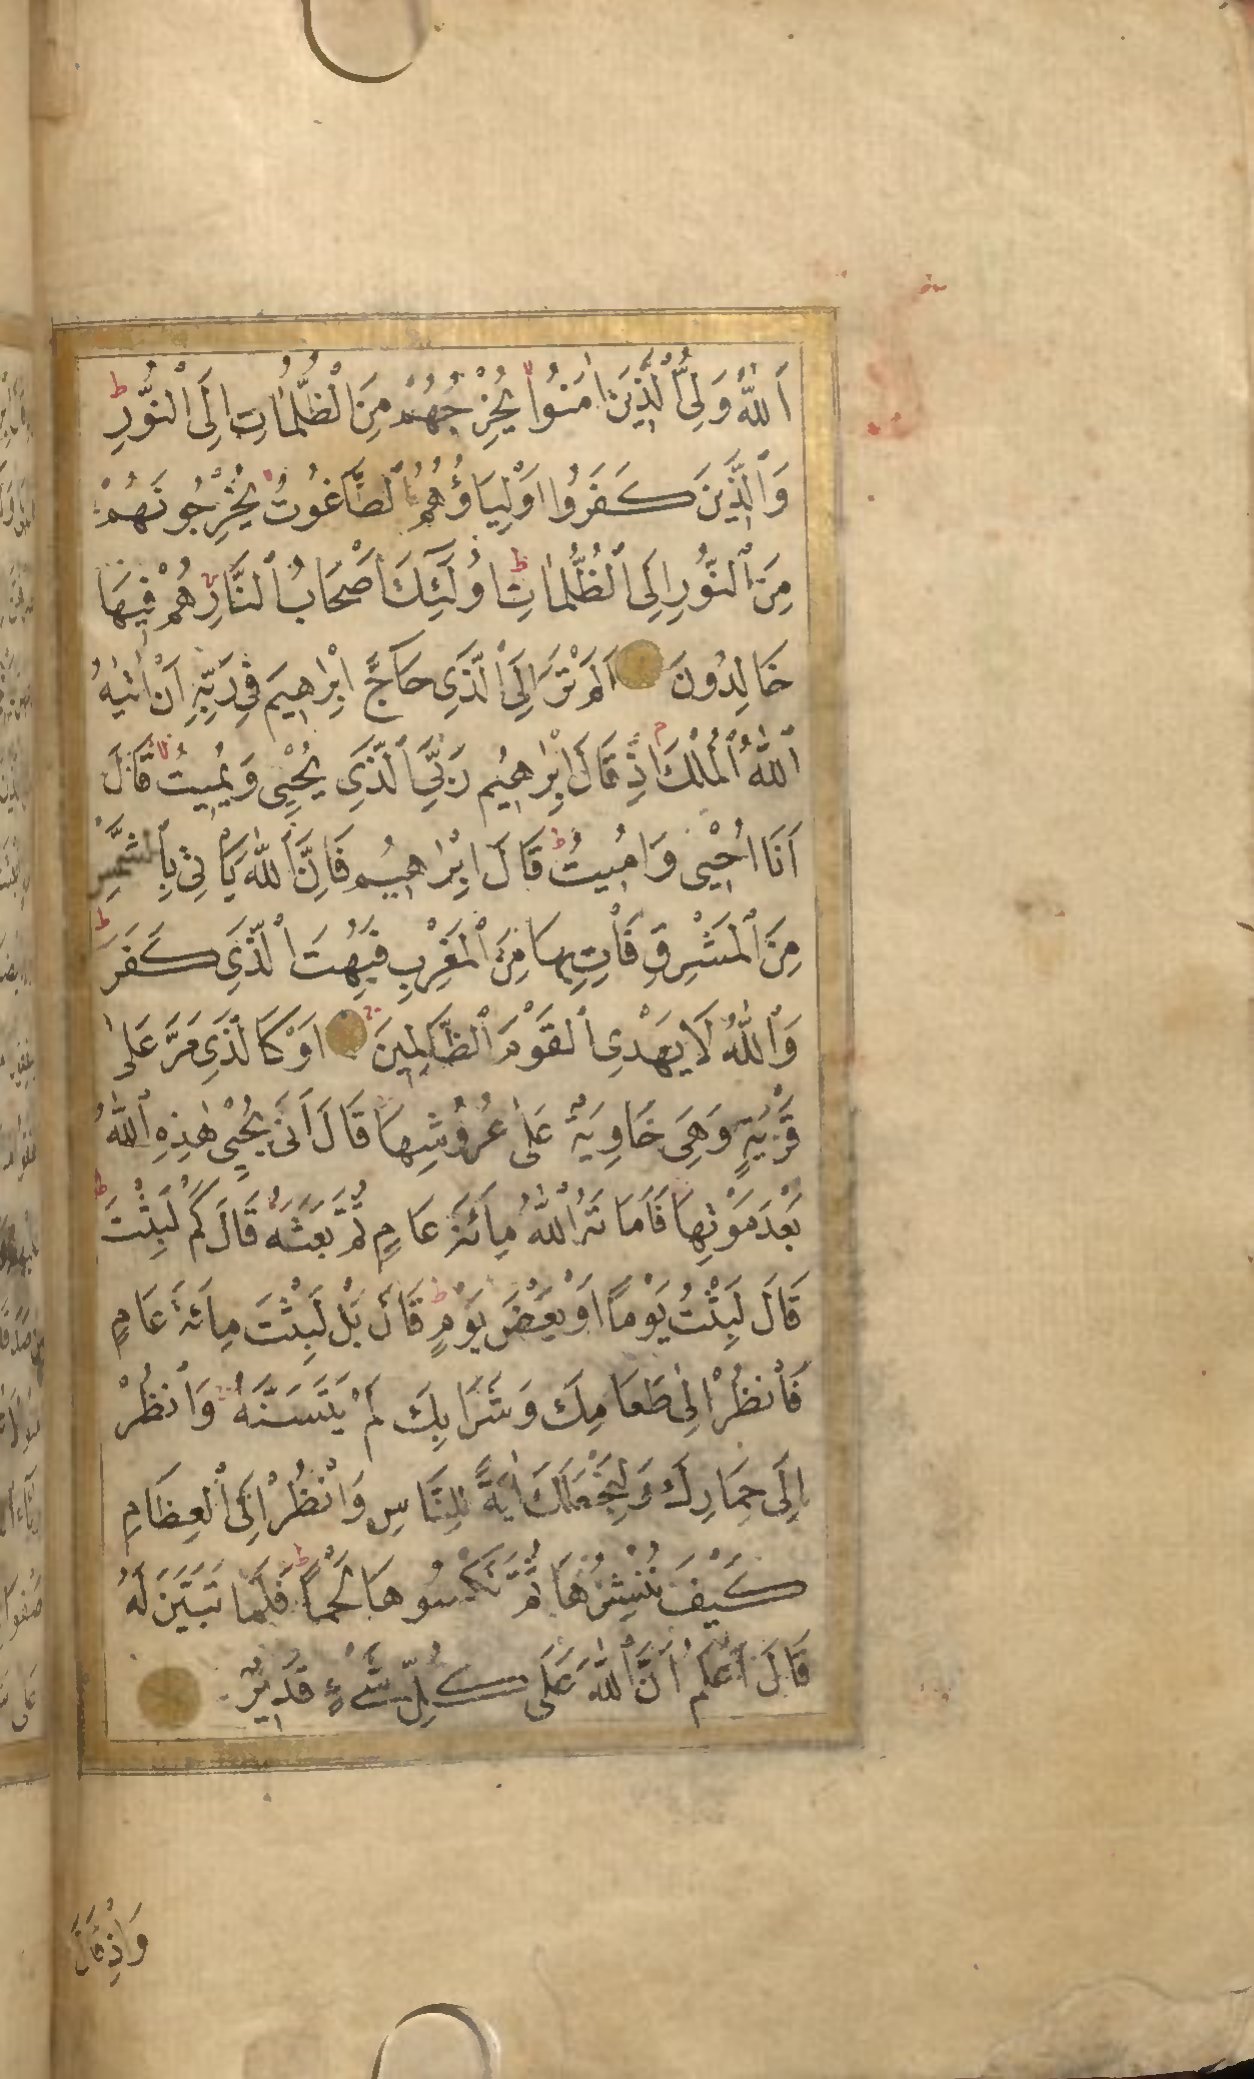 اَللّٰهُ وَلِيُّ ٱلَّذِينَ اٰمَنُوا يُخْرِجُهُمْ مِنَ ٱلظُّلُمَاتِ اِلَى ٱلنُّورِ ط
وَٱلَّذِينَ كَفَرُوا اَوْلِيَاؤُهُمُ ٱلطَّاغُوتُ يُخْرِجُونَهُمْ
مِنَ ٱلنُّورِ اِلَى ٱلظُّلُمَاتِ ط اُولَٓئِكَ اَصْحَابُ ٱلنَّارِ هُمْ فِيهَا
خَالِدُونَ اَلَمْ تَرَ اِلَى ٱلَّذِى حَاجَّ اِبْرٰهِيمَ فِى رَبِّهِ اَنْ اٰتٰيهُ
ٱللّٰهُ ٱلْمُلْكَ م اِذْ قَالَ اِبْرٰهِيمُ رَبِّيَ ٱلَّذِى يُحْيِى وَيُمِيتُ لا قَالَ
اَنَا اُحْيِى وَاُمِيتُ ط قَالَ اِبْرٰهِيمُ فَاِنَّ ٱللّٰهَ يَأْتِى بِٱلشَّمْسِ
مِنَ ٱلْمَشْرِقِ فَأْتِ بِهَا مِنَ ٱلْمَغْرِبِ فَبُهِتَ ٱلَّذِى كَفَرَ ط
وَٱللّٰهُ لَا يَهْدِى ٱلْقَوْمَ ٱلظَّالِمِينَ اَوْ كَالَّذِى مَرَّ عَلٰى
قَرْيَةٍ وَهِىَ خَاوِيَةٌ عَلٰى عُرُوشِهَا قَالَ اَنّٰى يُحْيِى هٰذِهِ ٱللّٰهُ
بَعْدَ مَوْتِهَا فَاَمَاتَهُ ٱللّٰهُ مِائَةَ عَامٍ ثُمَّ بَعَثَهُ قَالَ كَمْ لَبِثْتَ ط
قَالَ لَبِثْتُ يَوْمًا اَوْ بَعْضَ يَوْمٍ ط قَالَ بَلْ لَبِثْتَ مِائَةَ عَامٍ
فَٱنْظُرْ اِلٰى طَعَامِكَ وَشَرَابِكَ لَمْ يَتَسَنَّهْ وَٱنْظُرْ
اِلَى حِمَارِكَ وَلِنَجْعَلَكَ اٰيَةً لِلنَّاسِ وَٱنْظُرْ اِلَى ٱلْعِظَامِ
كَيْفَ نُنْشِزُهَا ثُمَّ نَكْسُوهَا لَحْمًا ط فَلَمَّا تَبَيَّنَ لَهُ
قَالَ اَعْلَمُ اَنَّ ٱللّٰهَ عَلَى كُلِّ شَىْءٍ قَدِيرٌ
وَاِذْ قَالَ